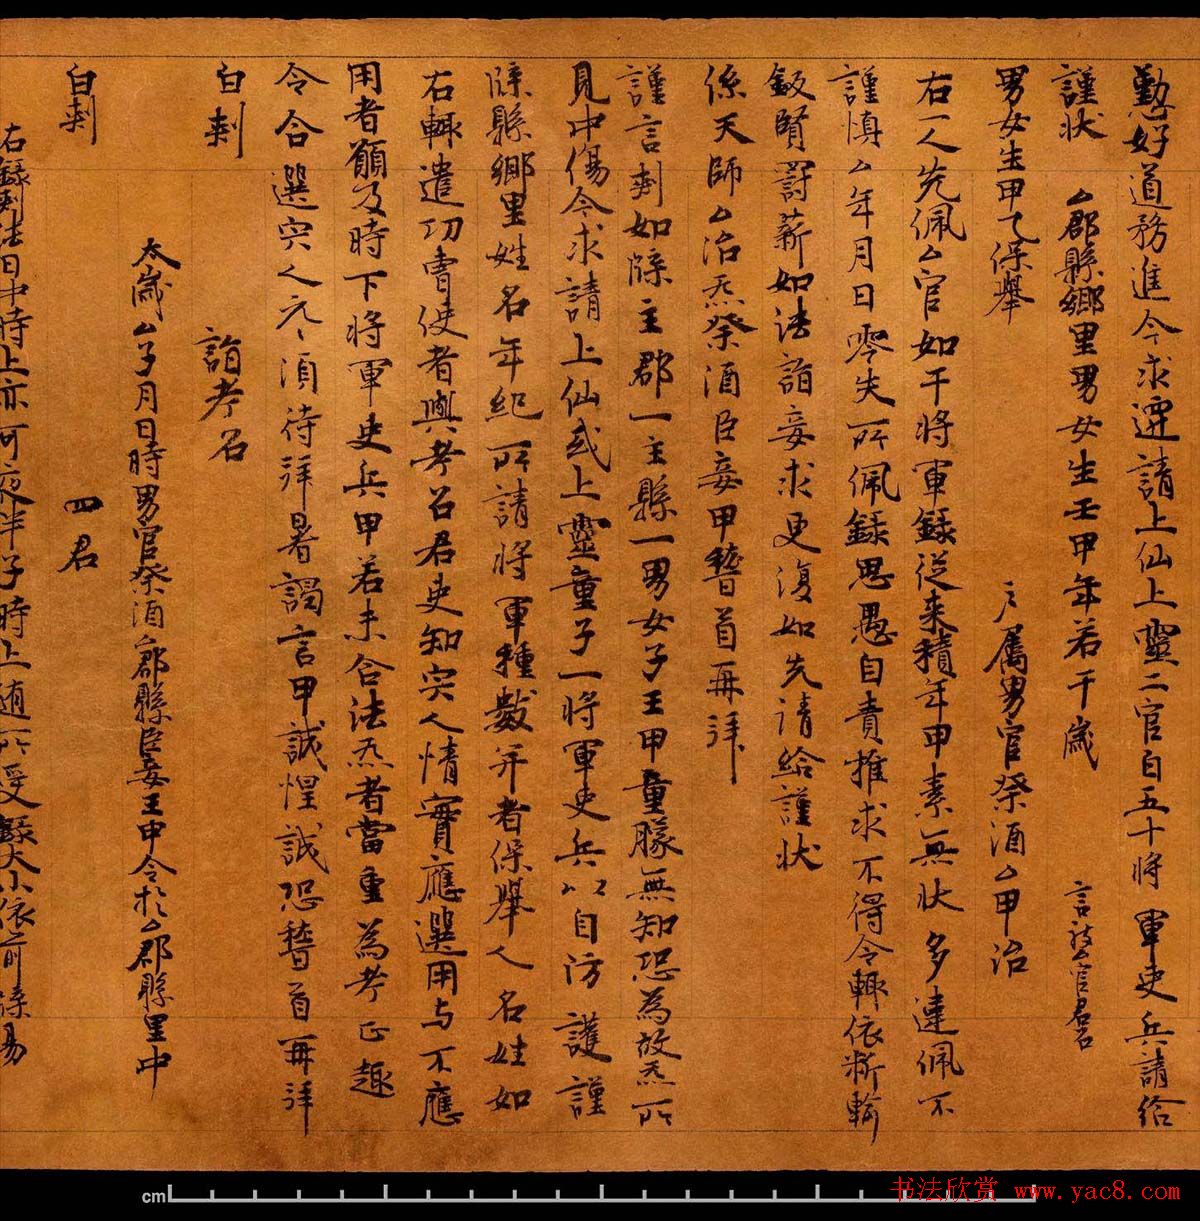 懃好道務進今求遷請上仙上靈二官自五十將軍吏兵請給
謹狀 厶郡縣鄉里男女生王甲年若干歲 言被厶官君召
男女生甲乙保舉 屬男官祭酒厶甲治
右一人先佩厶官如干將軍籙從来積年甲素無狀多違佩不
謹慎厶年月日零失所佩籙思愚自責推求不得今輒依科輸
賢罰薪如法詣妾求更復如先請給謹狀
係天師厶治炁祭酒臣妾甲稽首再拜
謹言刾如牒主郡一主縣一男女子王甲童矇無知恐為故炁所
見中傷今求請上仙或上靈童子一將軍吏兵以自防護謹
牒縣鄉里姓名年紀所請將軍種數并者保舉人名姓如
右輒遣功曹使者與考召君吏知實人情實應選用与不應
用者願及時下將軍吏兵甲若未合法炁者當重為考正趣
令合選實人 須待拜署謁言甲誠惶誠恐稽首再拜
白刾 詣考召
太歲厶子月日時男官祭酒厶郡縣臣妾王甲令於厶郡縣里中
白刾 四君
右籙刾法日中時上亦可夜半子時上 所受籙大小依前
cm
书法欣赏 www.yac8.com